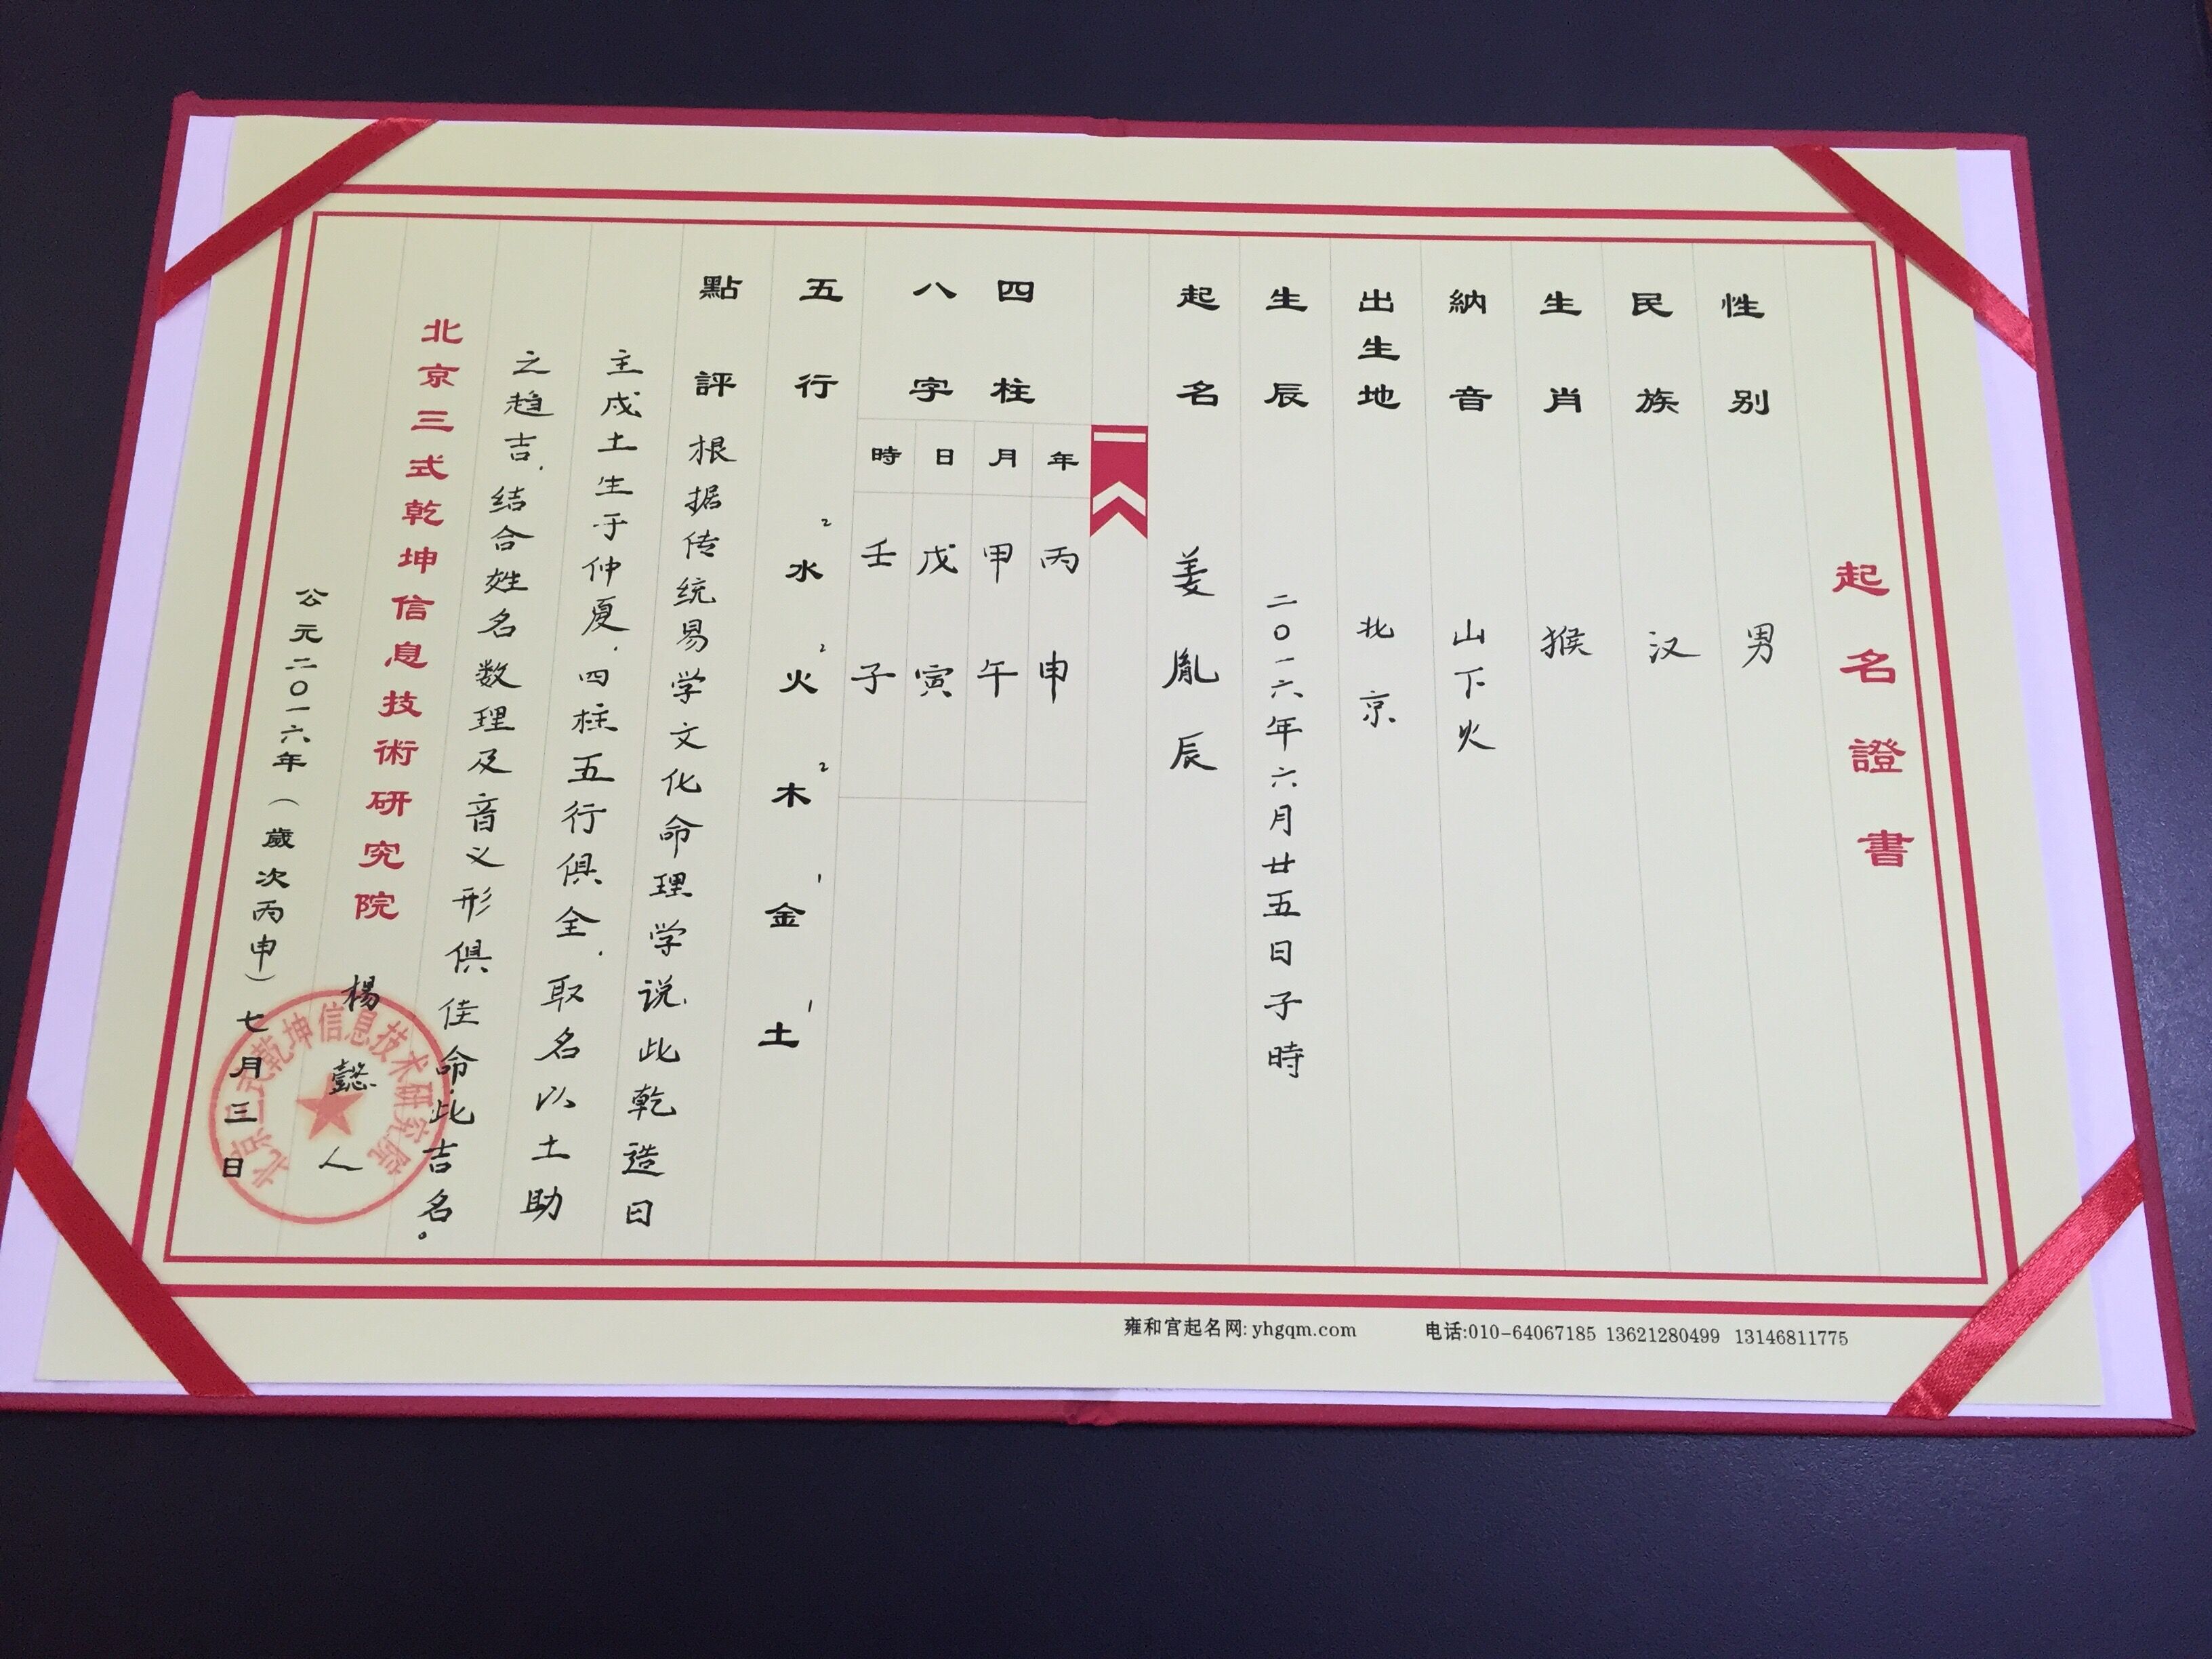 起名證書
性别 男
民族 汉
生肖 猴
納音 山下火
出生地 北京
生辰 二〇一六年六月廿五日子時
起名 姜胤辰
四柱
八字
年 丙申
月 甲午
日 戊寅
時 壬子
五行 水2 火2 木2 金1 土1
點評 根据传统易学文化命理学说.此乾造日
主戊土生于仲夏.四柱五行俱全.取名以土助
之趋吉.结合姓名数理及音义形俱佳.命此吉名。
北京三式乾坤信息技術研究院 楊懿人
公元二〇一六年（歲次丙申）七月三日
北京三式乾坤信息技术研究院
雍和宫起名网: yhgqm.com 电话:010-64067185 13621280499 13146811775